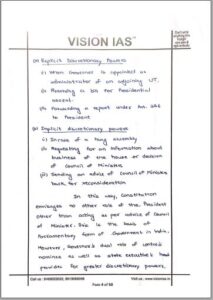 VISION IAS
(a) Explicit Discretionary Powers
(i) When Governor is appointed as
administrator of an adjoining UT.
(ii) Reserving a bill for Presidential
assent.
(iii) Forwarding a report under Art. 356
to President
(b) Implicit discretionary powers
(i) In case of a hung assembly
(ii) Requesting for an information about
business of the house or decision
of Council of Ministers
(iii) Sending an advice of Council of Ministers
back for reconsideration
In this way, Constitution
envisages no other role of the President
other than acting as per advice of Council
of Ministers. This is the basis of
Parliamentary form of Government in India.
However, Governor's dual role of centre's
nominee as well as state executive's head
provides for greater discretionary powers.